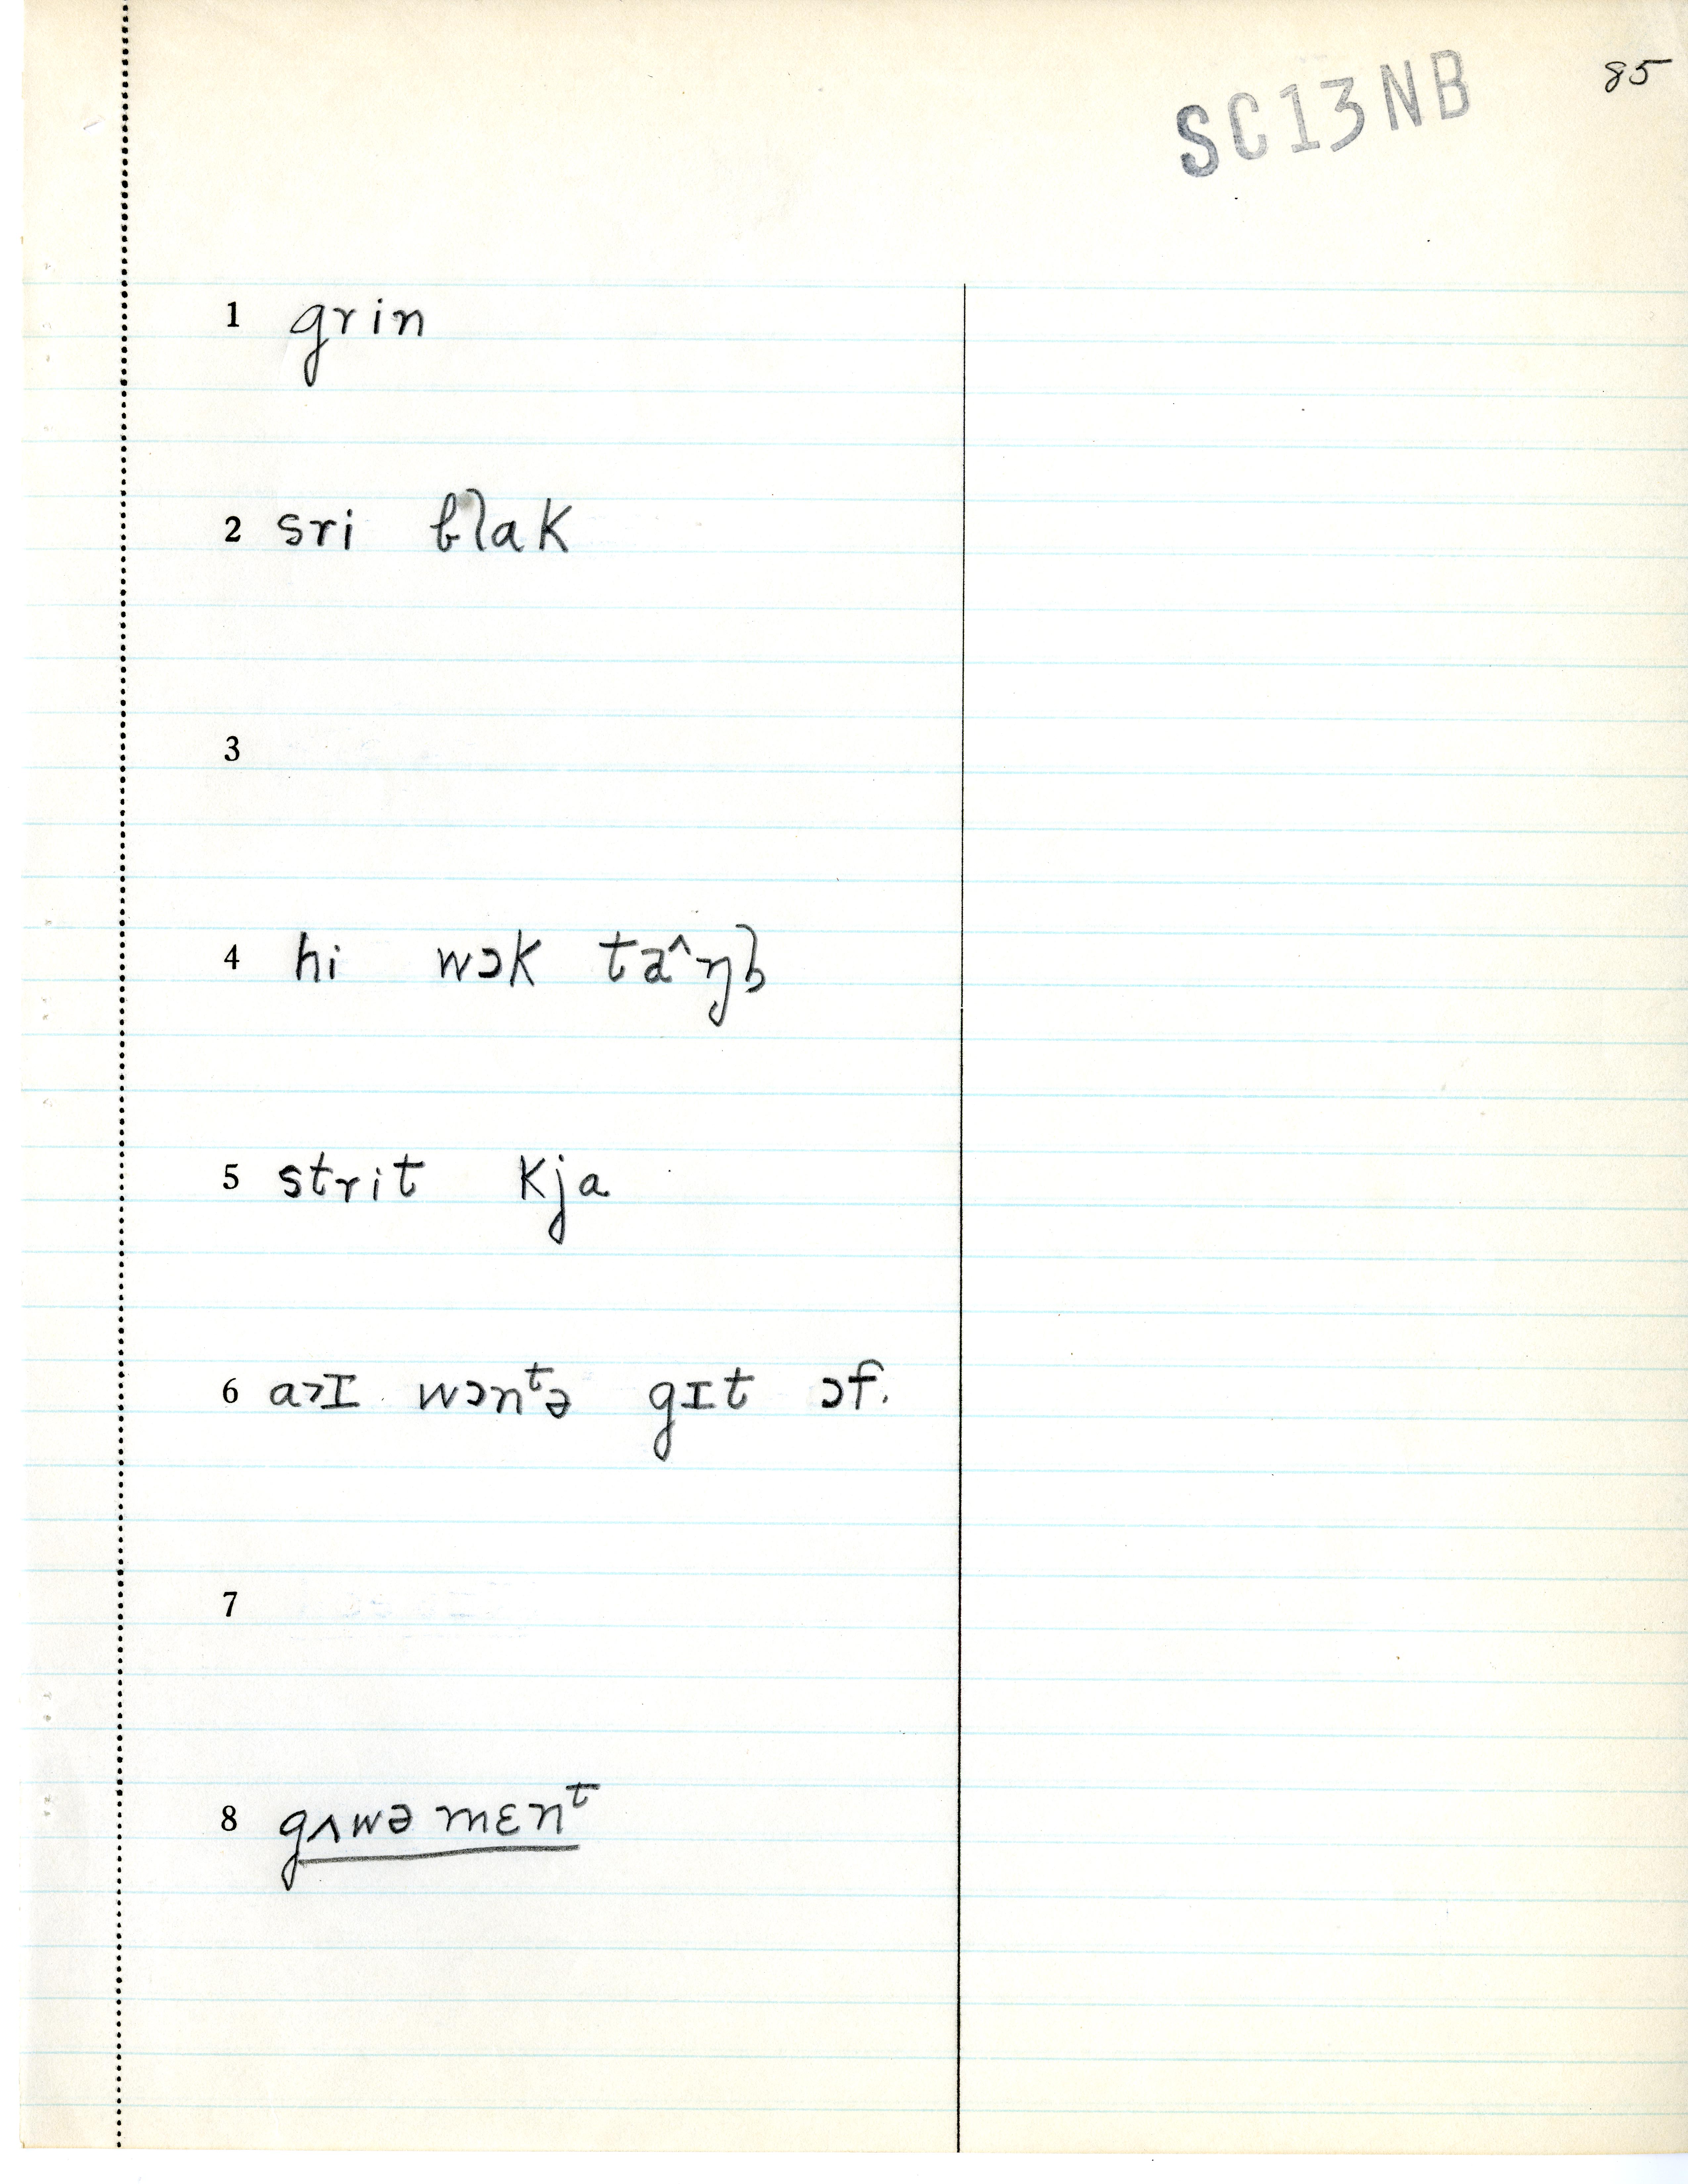 85
SC13NB
1 grin
2 sri blak
3
4 hi wɔk
5 strit kja
6 a˃ɪ wɔnᵗə gɪt ɔf.
7
8 gʌwəmɛnᵗ